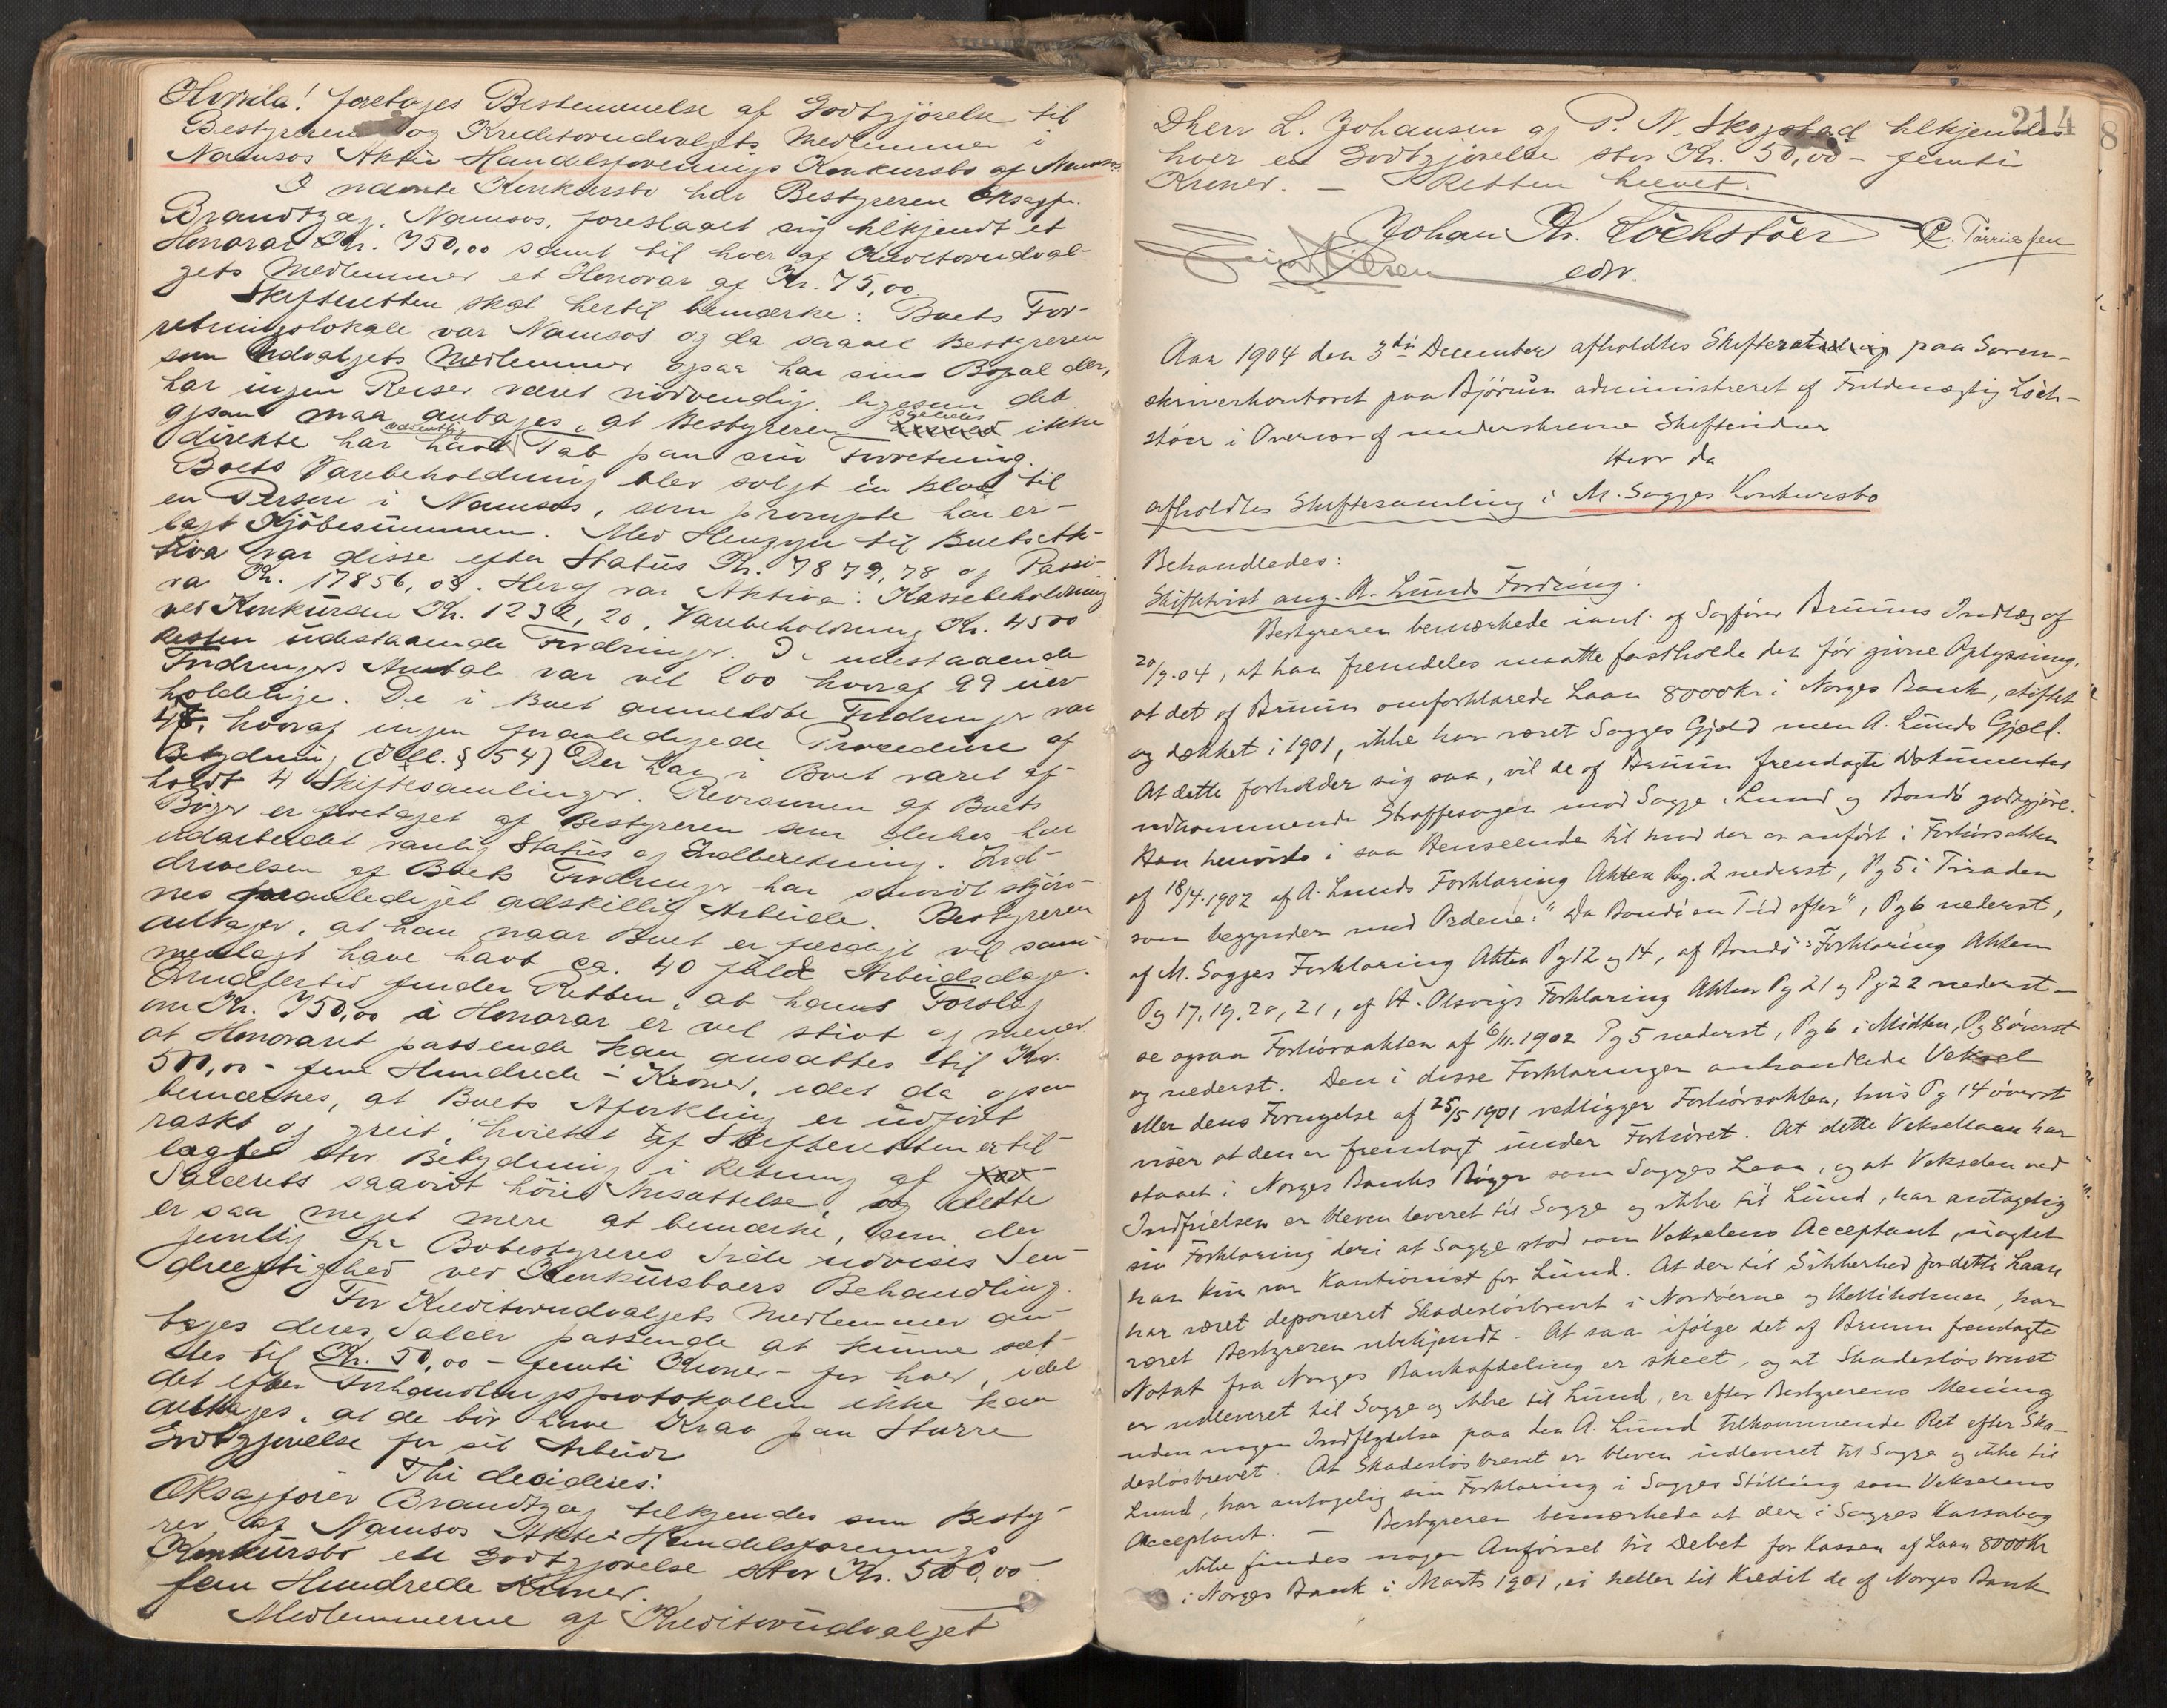 Hvorda! foretages Bestemmelse af Godtgjörelse til
Bestyreren og Kreditorudvalgets Medlemmer i
Namsos Aktie Handelsforenings Konkursbo af Namsos.
I nævnte Konkursbo har Bestyreren Oksagf.
Brandtzæg, Namsos, foreslaaet sig tilkjendt et
Honorar Kr. 750,00 samt til hver af Kreditorudval-
gets Medlemmer et Honorar af Kr. 75,00.
Skifteretten skal hertil bemærke: Boets For-
retningslokale var Namsos og da saavel Bestyreren
som Udvalgets Medlemmer ogsaa har sin Bopæl der,
har ingen Reiser været nödvendig, ligesom det
ogsaa maa antages, at Bestyreren saaledes ikke
direkte har havt væsentlig Tab paa sin Forretning.
Boets Varebeholdning blev solgt en bloc til
en Person i Namsos, som prompte har er-
lagt Kjöbesummen. Med Hensyn til Boets Ak-
tiva var disse efter Status Kr. 7879,78 og Passi-
va Kr. 17856,03. Heraf var Aktiva: Kassebeholdning
ved Konkursen Kr. 1232,20, Varebeholdning Kr. 4500
Resten udestaaende Fordringer. De udestaaende
Fordringers Antal var vel 200 hvoraf 99 uer-
holdelige. De i Boet anmeldte Fordringer var
47, hvoraf ingen foranledigede Procedure af
Betydning (§ 54) Der har i Boet været af-
holdt 4 Skiftesamlinger. Revisionen af Boets
Böger er foretaget af Bestyreren som derhos har
udarbeidet vanlig Status og Indberetning. Ind-
drivelsen af Boets Fordringer har saavidt skjön-
nes foranlediget adskillig Arbeide. Bestyreren
antager, at han naar Boet er færdigt vil sam-
menlagt have havt ca. 40 fulde Arbeidsdage.
Imidlertid finder Retten, at hans Forslag
om Kr. 750,00 i Honorar er vel stivt og mener
at Honoraret passende kan ansættes til Kr.
500,00 - fem Hundrede - Kroner, idet da ogsaa
bemærkes, at Boets Afvikling er udfört
raskt og greit, hvilket af Skifteretten er til-
lagt stor Betydning i Retning af
Salærets saavidt höie Ansættelse, og dette
er saa meget mere at bemærke, som der
jevnlig fra Bobestyreres Side udvises Sen-
drægtighed ved Konkursboers Behandling.
For Kreditorudvalgets Medlemmer an-
tages deres Salær passende at kunne sæt-
tes til Kr. 50,00 - femti Kroner - for hver, idet
det efter Forhandlingsprotokollen ikke kan
antages, at de bör have Krav paa Større
Godtgjörelse for sit Arbeide
Thi decideres:
OKsagförer Brandtzæg tilkjendes som Besty-
rer af Namsos Aktie Handelsforenings
Konkursbo en Godtgjörelse stor Kr. 500,00 -
fem Hundrede Kroner.
Medlemmerne af Kreditorudvalget
214
8
DHerr L. Johansen og P. N. Skogstad tilkjendes
hver en Godtgjörelse stor Kr. 50,00 - femti
Kroner. - Retten hævet.
Johan Kr. Löchstöer
edv.
Aar 1904 den 3die December afholdtes Skifteret paa Soren-
skriverkontoret paa Bjørum administreret af Fuldmægtig Löch-
stöer i Overvær af underskrevne Skiftevidner
Hvor da
afholdtes Skiftesamling i M. Sagges Konkursbo
Behandledes:
Skiftetvist ang. A. Lunds Fordring.
Bestyreren bemærkede i anl. af Sagförer Bruuns Indlæg af
20/9.04, at han fremdeles maatte fastholde den før givne Oplysning,
at det af Bruun omforklarede Laan 8000 kr i Norges Bank, stiftet
og dækket i 1901, ikke har været Sagges Gjæld men A. Lunds Gjæld.
At dette forholder sig saa, vil de af Bruun fremlagte Dokumenter
vedkommende Straffesagen mod Sagge, Lund og Bondö godtgjöre.
Han henviste i saa Henseende til hvad der er anfört i Forhörsakten
af 18/4.1902 af A. Lunds Forklaring Akten Pg. 2 nederst, Pg 5 i Traaden
som begynder med Ordene: "Da Bondö en Tid efter", Pg 6 nederst,
af M. Sagges Forklaring Akten Pg 12 og 14, af Bondö's Forklaring Akten
Pg 17, 19, 20, 21, af H. Olsvigs Forklaring Akten Pg 21 og Pg 22 nederst -
se ogsaa Forhörsakten af 6/11.1902 Pg 5 nederst, Pg 6 i Midten, Pg 8 överst
og nederst. Den i disse Forklaringer omhandlede Veksel
eller dens Fornyelse af 25/5 1901 vedligger Forhörsakten, hvis Pg 14 överst
viser at den er fremlagt under Forhöret. At dette Veksellaan har
staaet i Norges Banks Böger som Sagges Laan, og at Vekselen ved
Indfrielsen er bleven leveret til Sagge og ikke til Lund, har antagelig
sin Forklaring deri at Sagge stod som Vekselens Acceptant, uagtet
han kun var Kautionist for Lund. At der til Sikkerhed for dette Laan
har været deponeret Skadeslösbrevet i Nordöerne og Kalliholmen, har
været Bestyreren ubekjendt. - At saa ifölge det af Bruun fremlagte
Notat fra Norges Bankafdeling er skeet, og at Skadeslösbrevet
er udleveret til Sagge og ikke til Lund, er efter Bestyrerens Mening
uden nogen Indflydelse paa den A. Lund tilkommende Ret efter Ska-
deslösbrevet. At Skadeslösbrevet er bleven udleveret til Sagge og ikke til
Lund, har antagelig sin Forklaring i Sagges Stilling som Vekselens
Acceptant. - Bestyreren bemærkede at der i Sagges Kassabog
ikke findes nogen Anförsel til Debet for Kassen af Laan 8000 Kr
i Norges Bank i Marts 1901, ei heller til Kredit de af Norges Bank